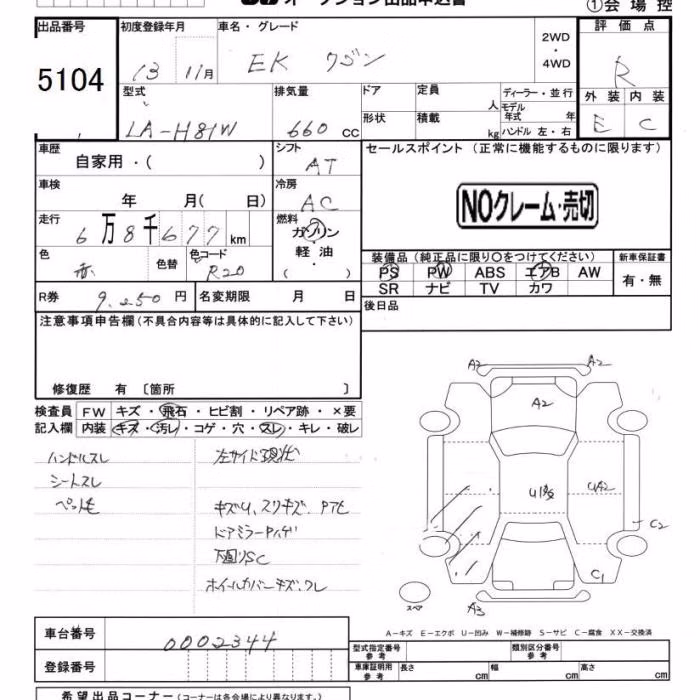 オークション出品申込書
①会場控
出品番号
初度登録年月
車名・グレード
2WD
・
4WD
評価点
5104
13 11月
EK ワゴン
R
型式
排気量
ドア
定員
人
ディーラー・並行
モデル年式 年
ハンドル 左・右
外装 内装
LA-H81W
660 CC
形状
積載
kg
E C
車歴
自家用・( )
シフト
AT
セールスポイント (正常に機能するものに限ります)
車検
年 月( 日)
冷房
AC
NOクレーム・売切
走行
6万8千677 km
燃料
ガソリン
・
軽油
( )
色
赤
色替
色コード
R20
装備品 (純正品に限り○をつけてください)
新車保証書
PS PW ABS エアB AW
有・無
SR ナビ TV カワ
R券 9.250 円
名変期限 月 日
後日品
注意事項申告欄 (不具合内容等は具体的に記入して下さい)
修復歴 有 〔箇所 〕
検査員 FW キズ・飛石・ヒビ割・リペア跡・×要
記入欄 内装 キズ・汚レ・コゲ・穴・スレ・キレ・破レ
ハンドルスレ
左サイド現状
シートスレ
ペット毛
キズU、スリキズ、Pアセ
ドアミラーPハゲ
下回りSC
ホイールカバーキズ、ワレ
A2 A2
A2
UA2
C2
C1
A3
スペア
A-キズ E-エクボ U-凹み W-補修跡 S-サビ C-腐食 XX-交換済
車台番号
0002344
型式指定番号
参考
類別区分番号
参考
登録番号
車庫証明用
参考
長さ cm 幅 cm 高さ cm
希望出品コーナー (コーナーは各会場により異なります。)